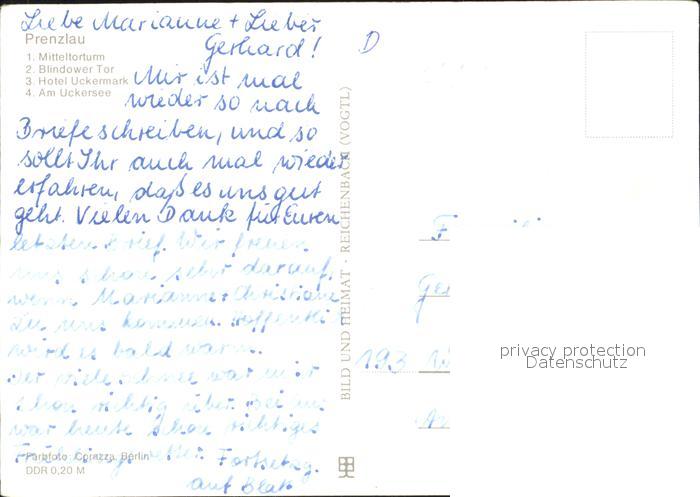 Liebe Marianne + Lieber
Gerhard!
Prenzlau
1. Mitteltorturm
2. Blindower Tor
3. Hotel Uckermark
4. Am Uckersee
Mir ist mal
wieder so nach
Briefeschreiben, und so
sollt Ihr auch mal wieder
erfahren, daß es uns gut
geht. Vielen Dank für Euren
letzten Brief. Wir freuen
uns schon sehr darauf,
wenn Marianne + Christiane
zu uns kommen. Hoffentlich
wird es bald warm.
Der viele Schnee war mir
schon richtig über. Bei uns
war heute schon richtiges
Frühlingswetter. Fortsetzg.
auf Blatt
Farbfoto: Corazza, Berlin
DDR 0,20 M
BILD UND HEIMAT · REICHENBACH (VOGTL)
D
F
Ge
193
privacy protection
Datenschutz